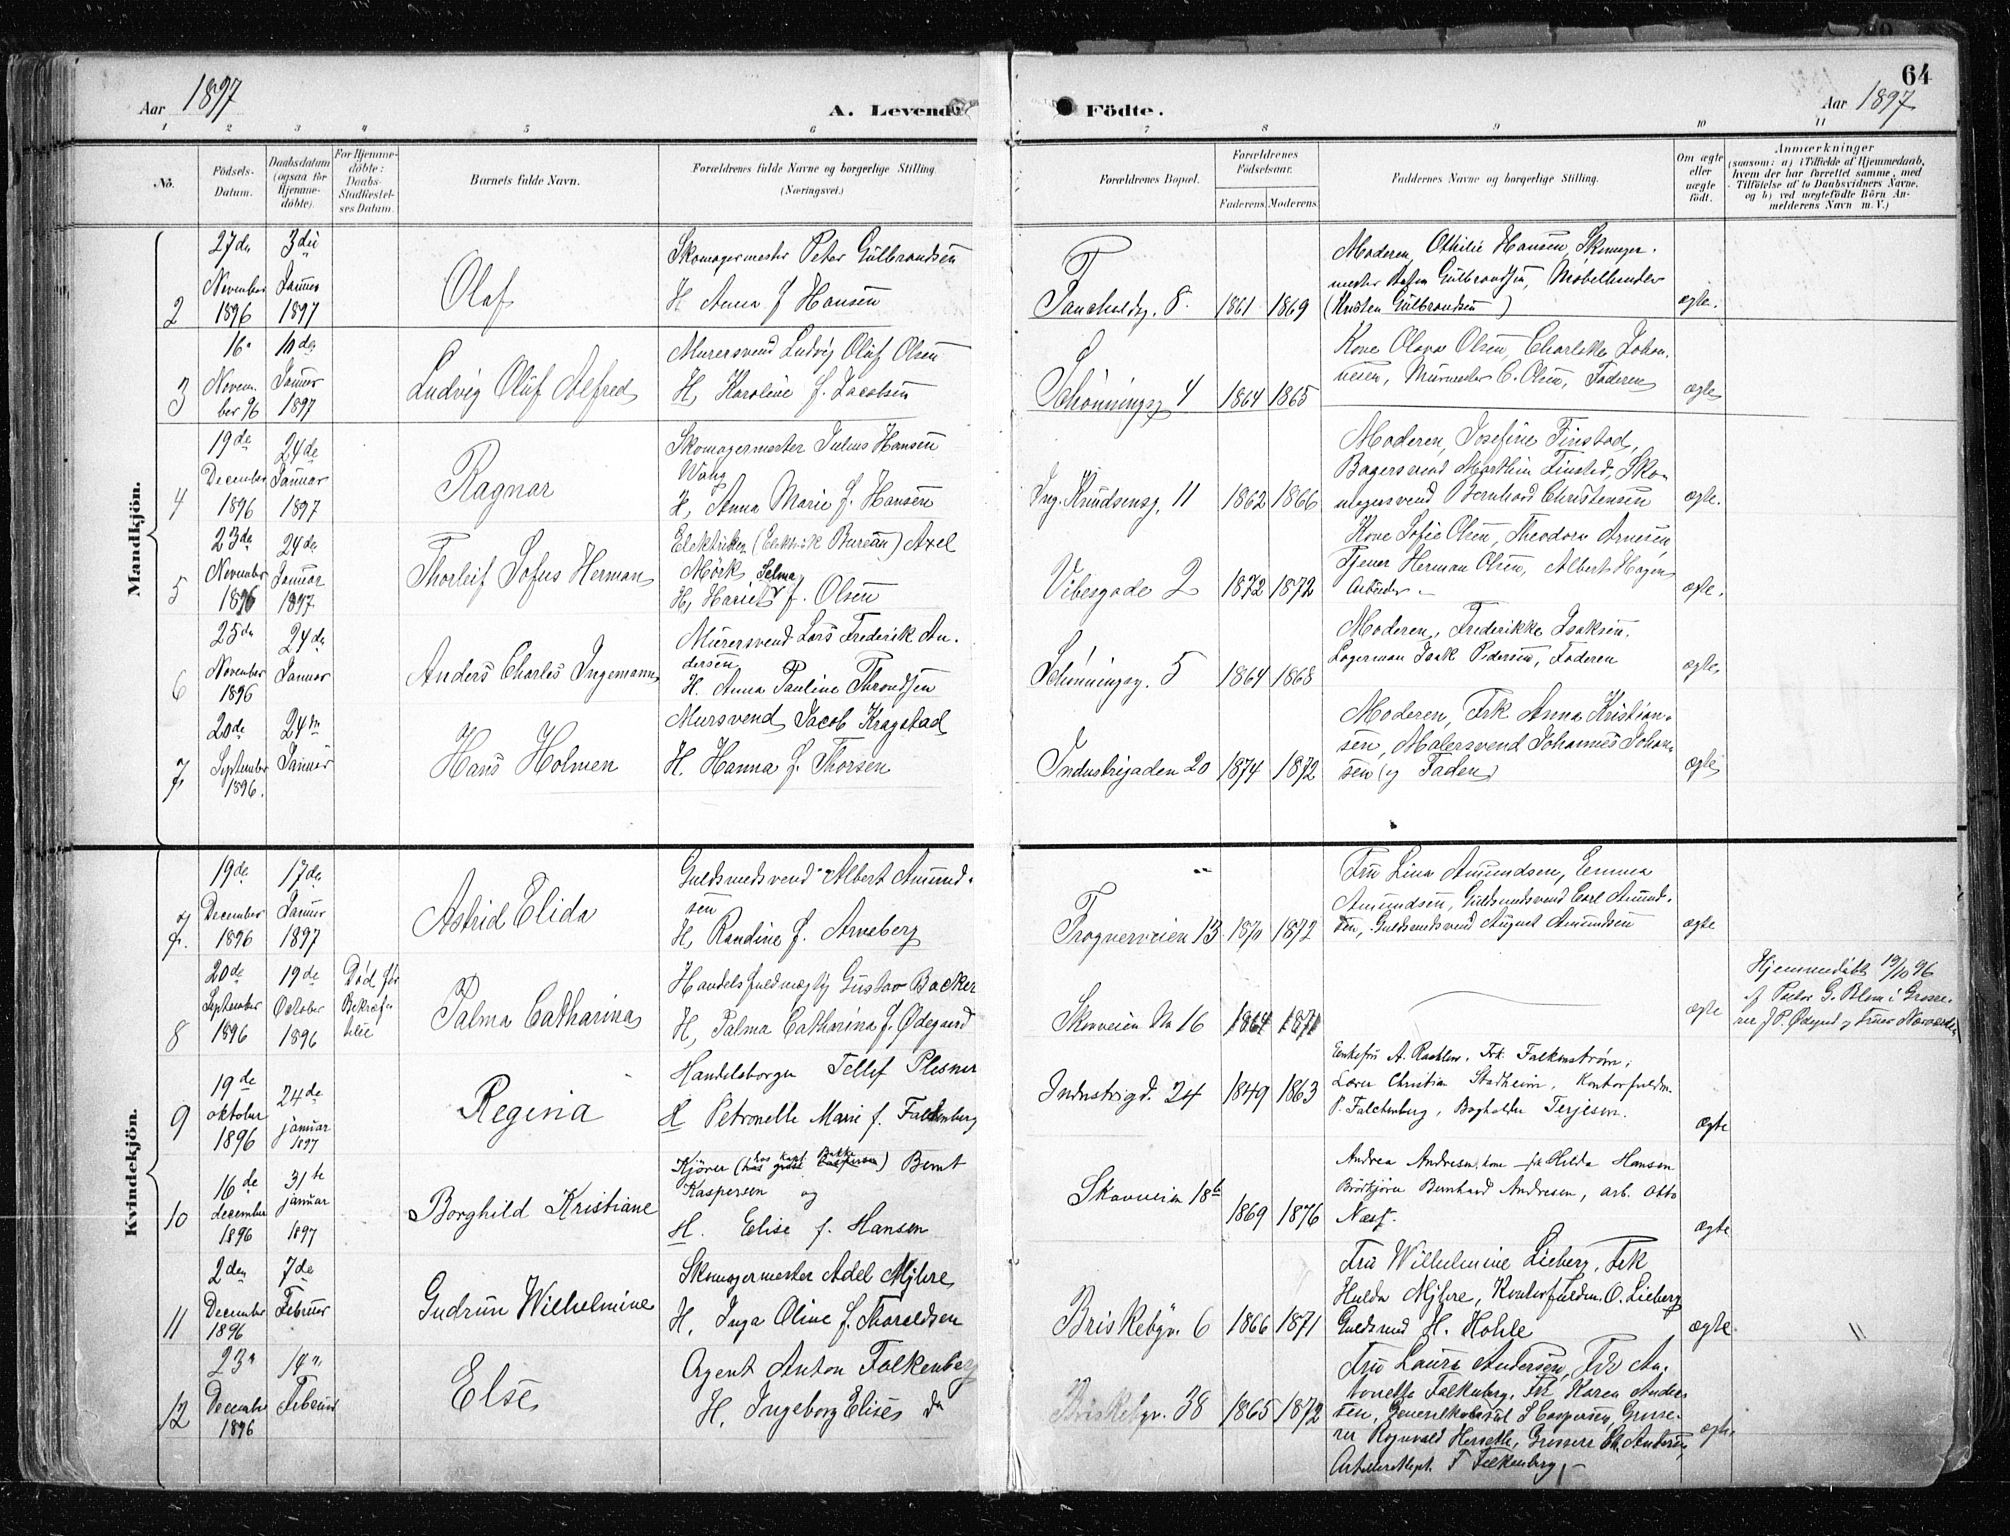 64
Aar 1897
A. Levende Födte.
Aar 1897
1 2 3 4 5 6 7 8 9 10 11
No.
Födsels-Datum.
Daabsdatum (ogsaa for Hjemmedöbte).
For Hjemmedöbte: Daabs-Stadfæstelses Datum.
Barnets fulde Navn.
Forældrenes fulde Navne og borgerlige Stilling (Næringsvei.)
Forældrenes Bopæl.
Forældrenes Födselsaar.
Faderens. Moderens.
Faddernes Navne og borgerlige Stilling.
Om ægte eller uægte födt.
Anmærkninger
(saasom: a) i Tilfælde af Hjemmedaab, hvem der har forrettet samme, med Tilföielse af to Daabsvidners Navne, og b) ved uægtefödte Börn Anmelderens Navn m. V.)
Mandkjön.
2
27de November 1896
3die Januar 1897
Olaf
Skomagermester Peter Gulbrandsen
H. Anna f Hansen
8.
1861 1869
Moderen, Othilie Hansen, Skomager-
mester Gulbrandsen, Möbelhandler
(Kristen Gulbrandsen)
ægte.
3
16. November 96
10de Januar 1897
Ludvig Oluf Alfred
Murersvend Ludvig Oluf Olsen
H. Karoline f. Jacobsen
Schønningsg 4
1864 1865
Kone Olava Olsen, Charlotte Johan-
nesen, Murmester C. Olsen, Faderen
ægte
4
19de December 1896
24de Januar 1897
Ragnar
Skomagermester Julius Hansen
Wang
H. Anna Marie f. Hansen
Ing. Knudsensg. 11
1862 1866
Moderen, Josefine Finstad,
Bagersvend Marthin Finstad, Sko-
magersvend Bernhard Christensen
ægte.
5
23de November 1896
24de Januar 1897
Thorleif Sofus Herman
Elektriker (Elektrisk Bureau) Axel
Mørk
H. Harriet Selma f. Olsen
Vibesgade 2
1872 1872
Kone Sofie Olsen, Theodora Arnesen
Tjener Herman Olsen, Albert Hagen
Arbeider -
ægte.
6
25de November 1896
24de Januar
Anders Charles Ingemann
Murersvend Lars Frederik An-
dersen
H. Anna Pauline Throndsen
Schønningsg. 5
1864 1868
Moderen, Frederikke Isaksen,
Lagermand Isak Pedersen, Faderen
ægte
7
20de September 1896.
24de Januar
Hans Holmen
Mursvend Jacob Kragstad
H. Hanna f. Thorsen
Industrigaden 20
1874 1872
Moderen, Frk Anna Kristian-
sen, Malersvend Johannes Johan-
sen (og Faderen)
ægte
Kvindekjön.
7
19de December 1896
17de Januar 1897
Astrid Elida
Guldsmedsvend Albert Amund-
sen
H. Randine f. Arneberg
Frognerveien 13
1870 1872
Fru Lina Amundsen, Emma
Amundsen, Guldsmedsvend Carl Amund-
sen, Guldsmedsvend August Amundsen
ægte
8
20de September 1896
19de October 1896
Død før Bekræftelse
Palma Catharina
Handelsfuldmægtig Gustav Backer
H. Palma Catharina f. Ødegaard
Skovveien No 16
1864 1871
ægte
Hjemmedøbt 19/10 96
af Pastor G. Blom
9
19de oktober 1896
24de januar 1897
Regina
Handelsborger Tellef Plesner
H Petronelle Marie f. Falkenberg
Industrigd. 24
1849 1863
Enkefru A. Fr. Falkenstrøm,
Lærer Christian Stadheim, Kontorfuldm.
P. Falckenberg, Bogholder Terjesen.
ægte
10
16de december 1896
31te januar 1897
Borghild Kristiane
Kjører (hos Kapt. Bakke) Bernt
Kaspersen og
H. Elise f. Hansen
Skovveien 18b
1869 1876
Andrea Andresen, kone - frk Hilda Hansen
Bernhard Andresen, arb. Otto
Næss.
ægte
11
2den December 1896
7de Februar
Gudrun Wilhelmine
Skomagermester Adel Myhre,
H. Inga Oline f. Thoraldsen
Briskebyv. 6
1866 1871
Fru Wilhelmine Lieberg, Frk
Hulda Myhre, Kontorfuldm. O. Lieberg
Guldsvend H. Hohle
ægte
"
12
23de December 1896
14de Februar
Else
Agent Anton Falkenberg
H. Ingeborg Elise
Briskebyv. 38
1865 1872
Fru Laura Andersen, Frk An-
tonette Falkenberg, Frk Karen Ander-
sen, Generalkonsul S Caspersen, Grosse-
rer Rognvald Herseth, Grosserer Chr. Andersen,
F Falkenberg, -
ægte